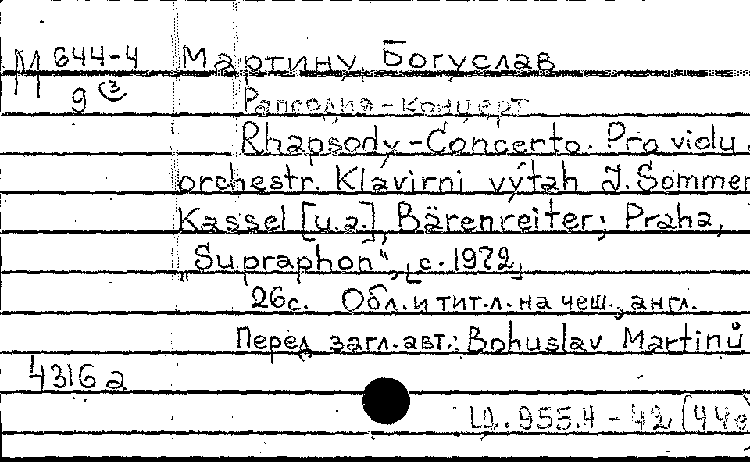 М 644-4 Мартину, Богуслав
9 (3
Рапсодия-концерт
Rhapsody-Concerto. Pro violu
orchestr. Klávirni výtah J. Sommer
Kassel [u.a.], Bärenreiter; Praha,
„Supraphon“, [c. 1972]
26с. Обл. и тит.л. на чеш., англ.
Перед загл. авт.: Bohuslav Martinů
4316a
Ц. 955.4 - 42 (44